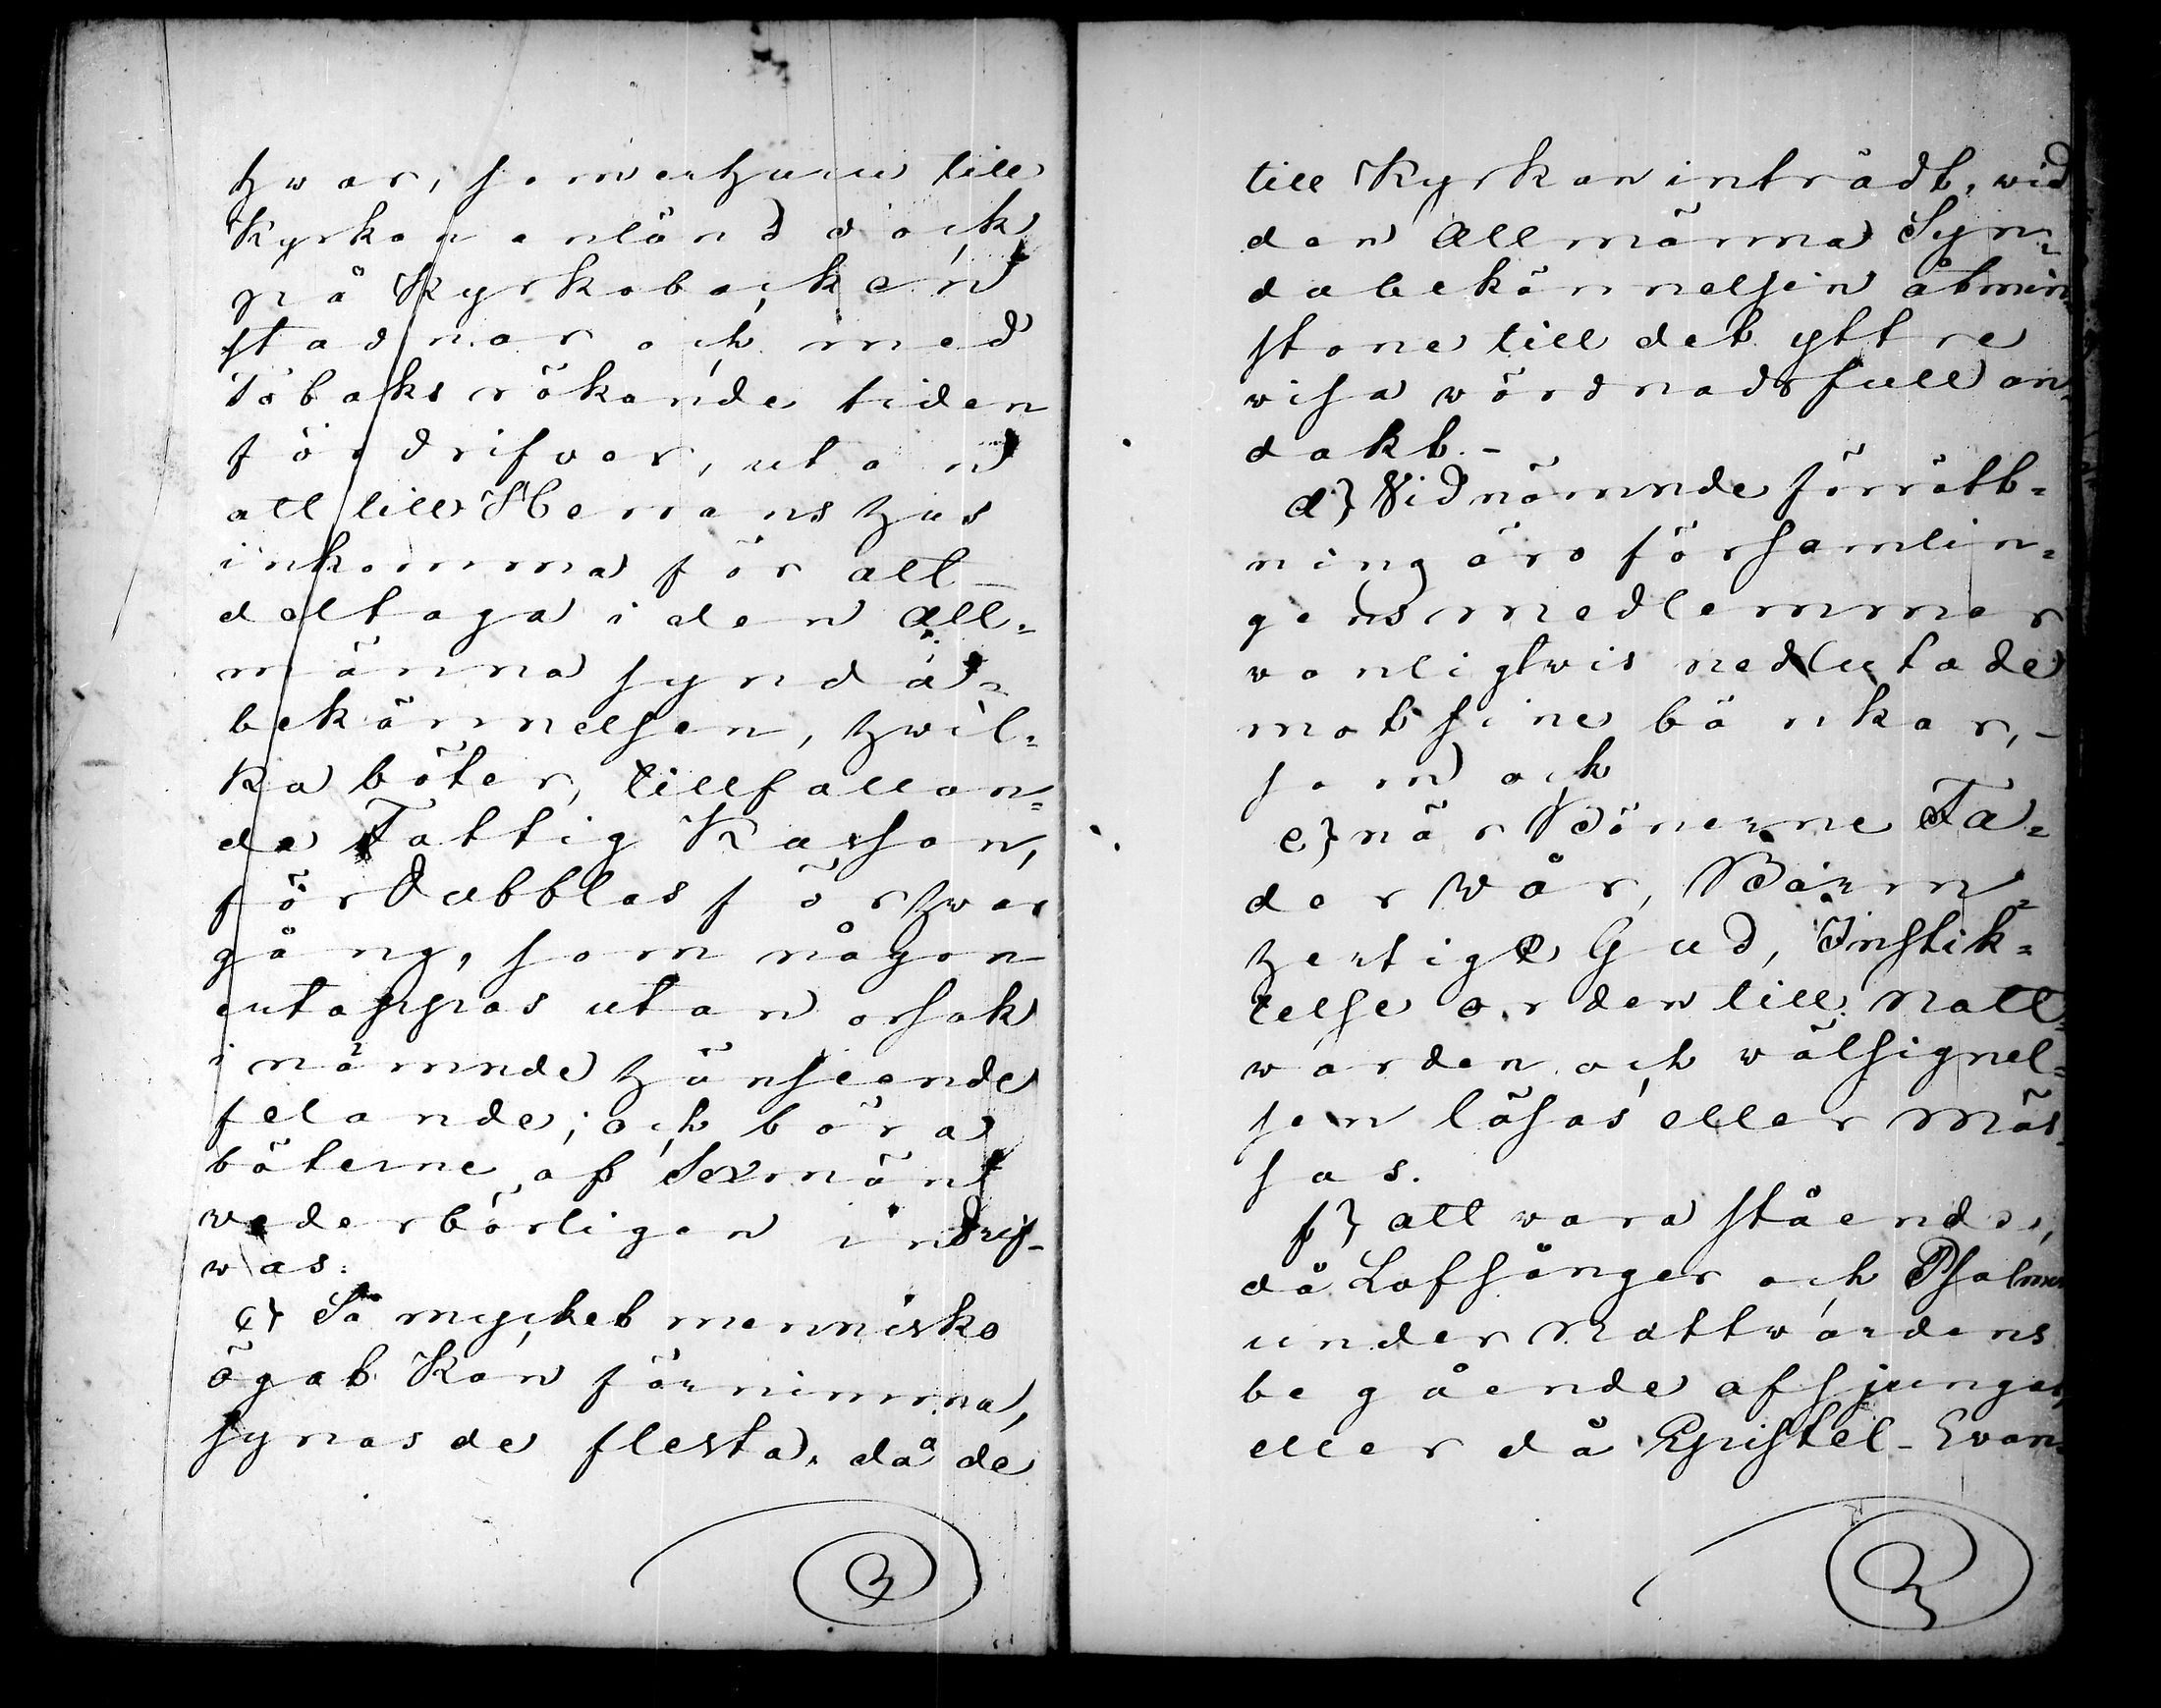 hwar, som ehuru till
Kyrkan anländ dock
på Kyrkobacken
stadnar och med
Tobaks rökande tiden
fördrifver, utan
att till Herrans hus
inkomma för att
deltaga i den all=
männa synda=
bekännelsen, hwil=
ka böter, tillfallan=
de Fattig Kassan,
fördubblas för hwar
gång, som någon
ertappas utan orsak
i nämnde hänseende
felande; och böra
böterne af Sexmän
wederbörligen indrif-
was.
c) Så mycket mennisko
ögat kan förnimma,
synas de flesta, då de
till Kyrkan inträdt, wid
den allmänna Syn=
dabekännelsen åtmin=
stone till det yttre
wisa wördnadsfull an=
dakt. -
d) Vid nämnde förrätt=
ning äro församlin=
gens medlemmar
vanligtwis nedlutade
mot sine bänkar, -
som och
e) när Bönerne Fa=
der Wår, Barm=
hertige Gud, Instik=
telse orden till Natt=
warden och wälsignel=
sen läsas eller Mäs=
sas.
f) att vara stående,
då Lofsånger och Psalmer
under Nattwardens
begående afsjunges,
eller då Epistel - Evan=